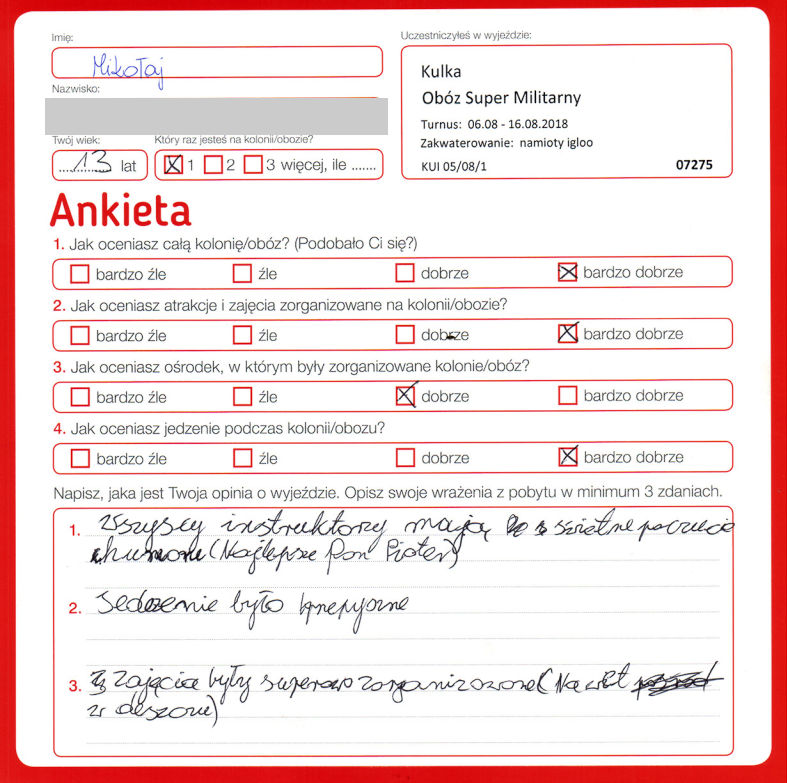 Imię:
Mikołaj
Nazwisko:
Twój wiek:
13 lat
Który raz jesteś na kolonii/obozie?
1 2 3 więcej, ile .......
Uczestniczyłeś w wyjeździe:
Kulka
Obóz Super Militarny
Turnus: 06.08 - 16.08.2018
Zakwaterowanie: namioty igloo
KUI 05/08/1 07275
Ankieta
1. Jak oceniasz całą kolonię/obóz? (Podobało Ci się?)
bardzo źle źle dobrze bardzo dobrze
2. Jak oceniasz atrakcje i zajęcia zorganizowane na kolonii/obozie?
bardzo źle źle dobrze bardzo dobrze
3. Jak oceniasz ośrodek, w którym były zorganizowane kolonie/obóz?
bardzo źle źle dobrze bardzo dobrze
4. Jak oceniasz jedzenie podczas kolonii/obozu?
bardzo źle źle dobrze bardzo dobrze
Napisz, jaka jest Twoja opinia o wyjeździe. Opisz swoje wrażenia z pobytu w minimum 3 zdaniach.
1. instruktorzy mają poczucie
(Najlepsze Pan Pioter)
2. Jedzenie było
3. Zajęcia były zorganizowane (Nawet
w deszcze)